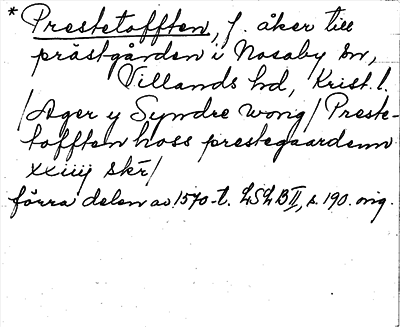 * Prestetofften, f. åker till
prästgården i Nosaby sn,
Villands hd, Krist. l.
/Ager y Syndre wong/ Preste-
tofften hoss prestegaardenn
xxiiij skr/
förra delen av 1570-t. LSLB II, s. 190. orig.